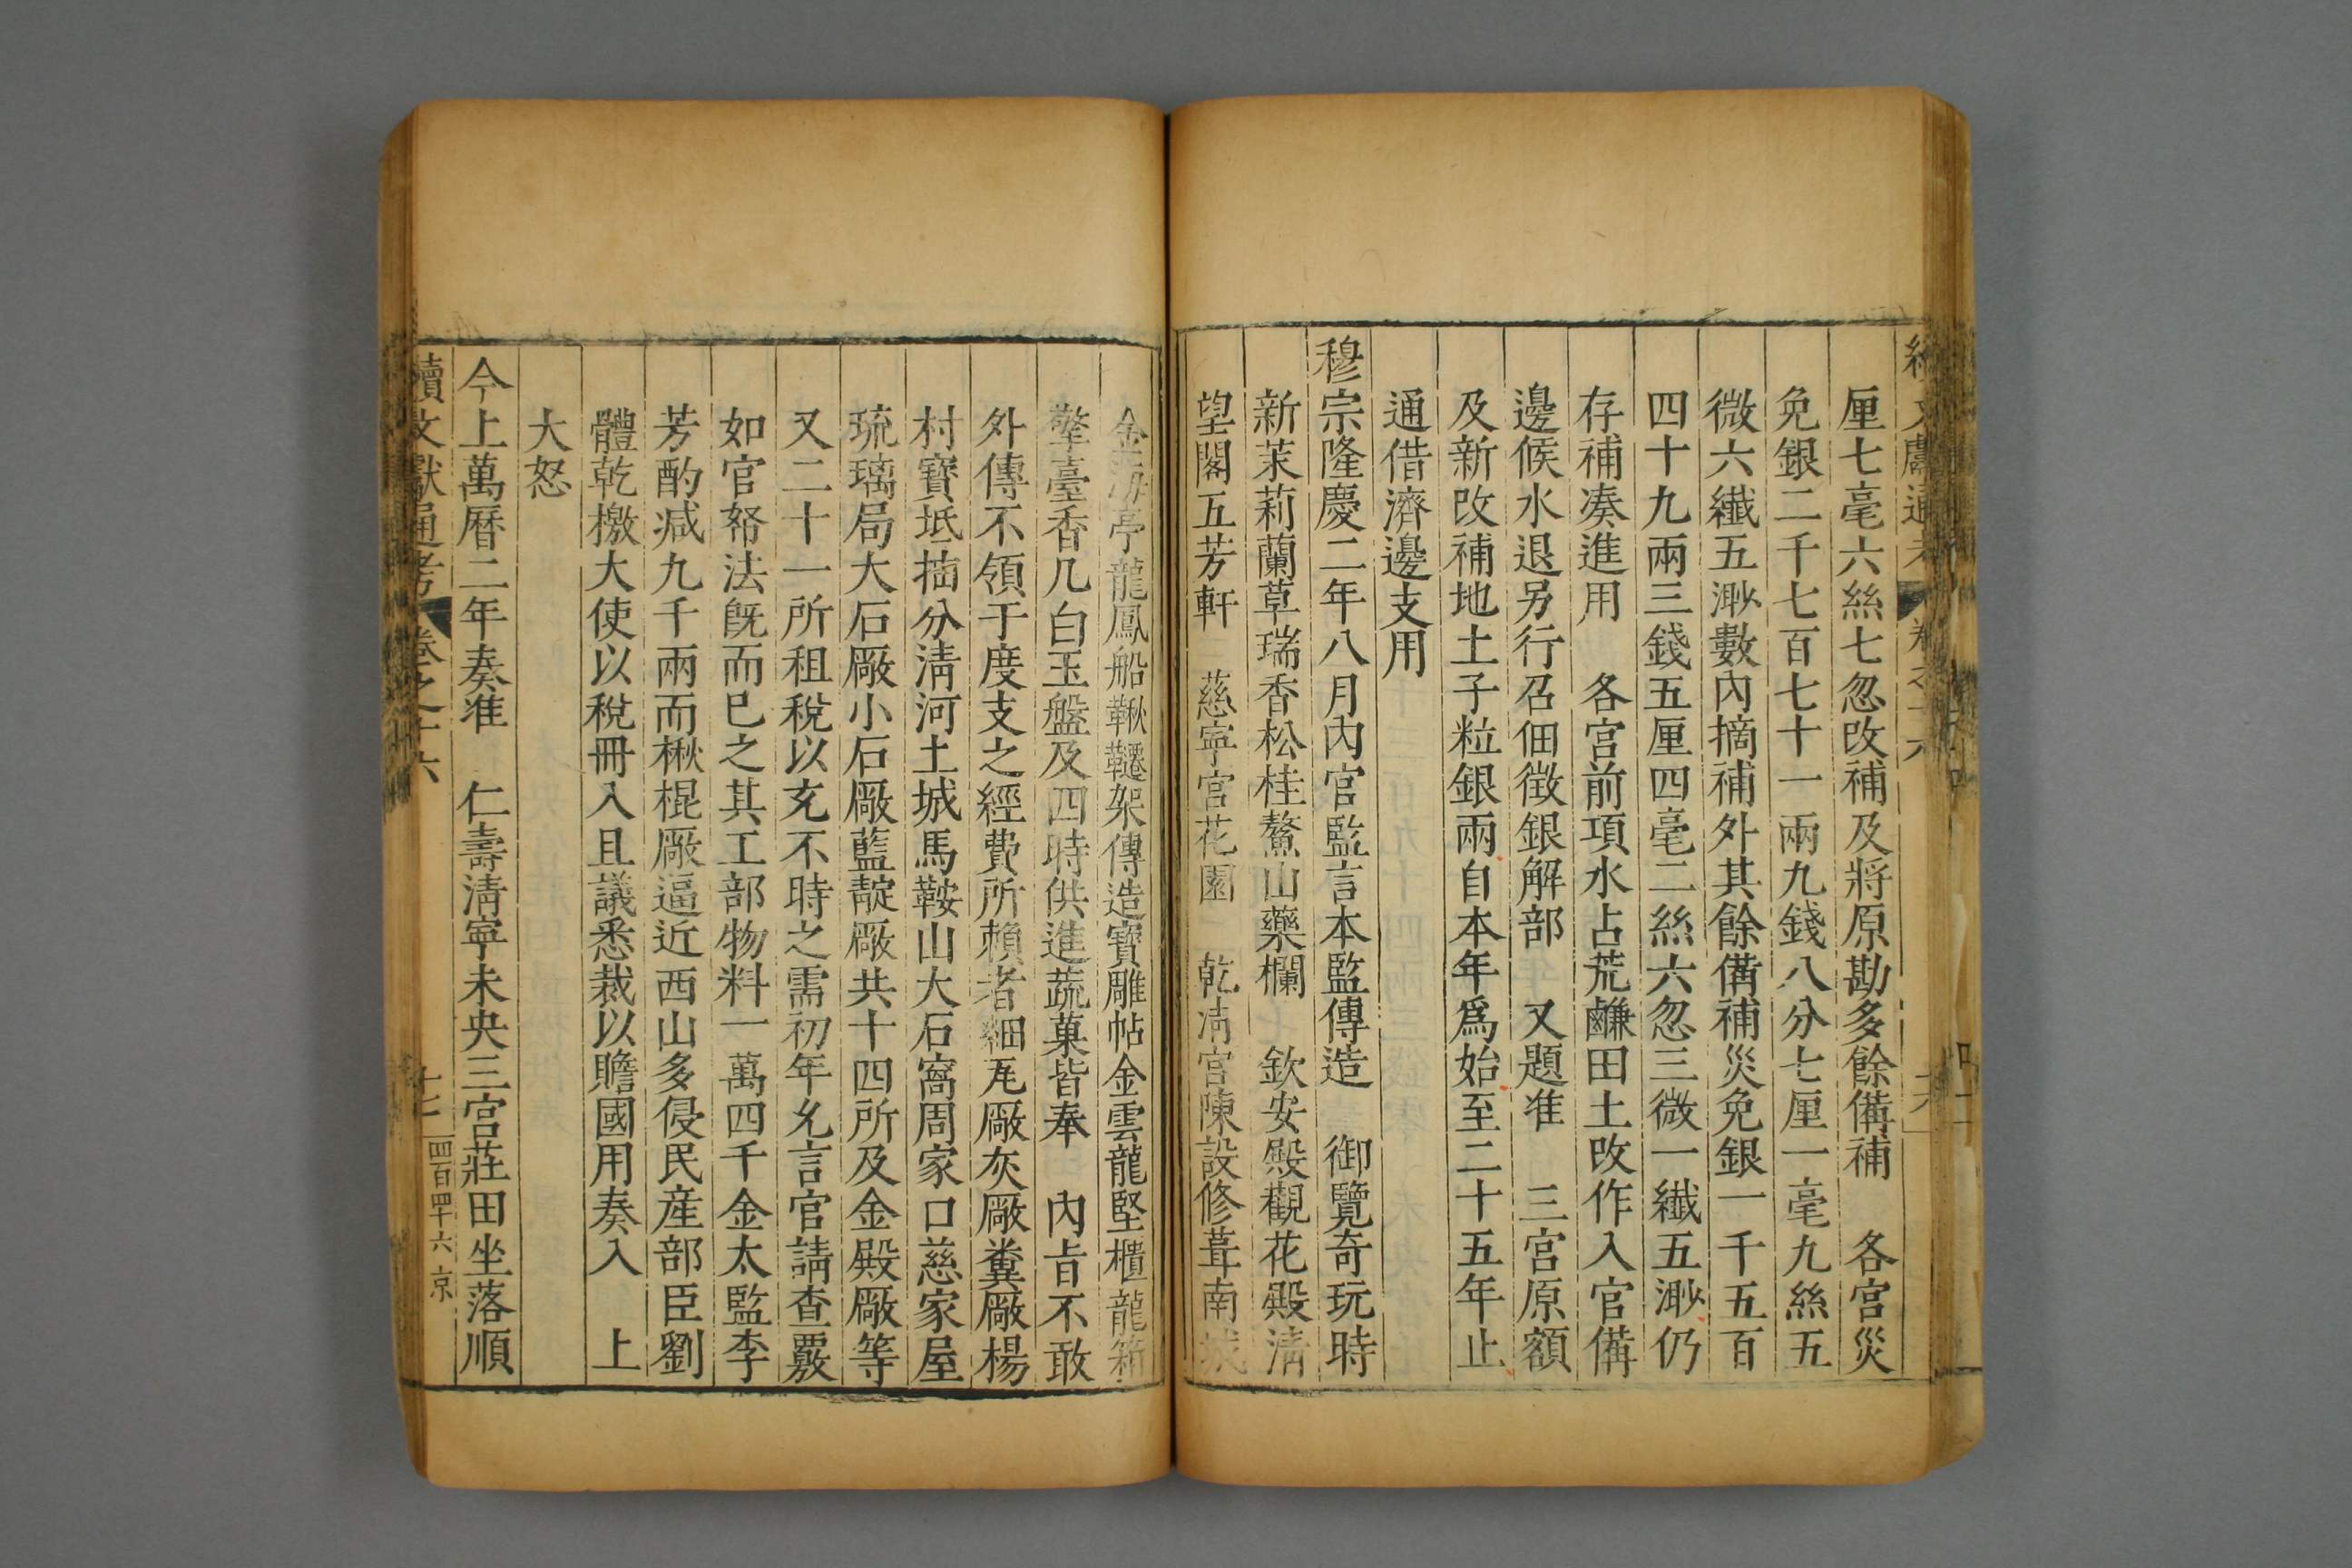 續文獻通考 卷之十六
厘七毫六絲七忽改補及將原勘多餘備補 各宮災
免銀二千七百七十一兩九錢八分七厘一毫九絲五
微六纎五渺數內摘補外其餘備補災免銀一千五百
四十九兩三錢五厘四毫二絲六忽三微一纎五渺仍
存補凑進用 各宮前項水占荒鹻田土改作入官備
邊候水退另行召佃徵銀解部 又題准 三宮原額
及新改補地土子粒銀兩自本年爲始至二十五年止
通借濟邊支用
穆宗隆慶二年八月內官監言本監傳造 御覽奇玩時
新茉莉蘭草瑞香松桂鰲山藥欄 欽安殿觀花殿清
望閣五芳軒 慈寧宮花園 乾清宮陳設修葺南城
金海亭龍鳳船鞦韆架傳造寶雕帖金雲龍堅櫃龍箱
擎臺香几白玉盤及四時供進蔬菓皆奉 內旨不敢
外傳不領于度支之經費所賴者細瓦厰灰厰糞厰楊
村寶坻摘分清河土城馬鞍山大石窩周家口慈家屋
琉璃局大石厰小石厰藍靛厰共十四所及金殿厰等
又二十一所租稅以充不時之需初年尤言官請查覈
如官帑法旣而已之其工部物料一萬四千金太監李
芳酌减九千兩而楸棍厰逼近西山多侵民産部臣劉
體乾檄大使以稅冊入且議悉裁以贍國用奏入 上
大怒
今上萬曆二年奏准 仁壽清寧未央三宮莊田坐落順
續文獻通考 卷之十六 十七 四百四十六京